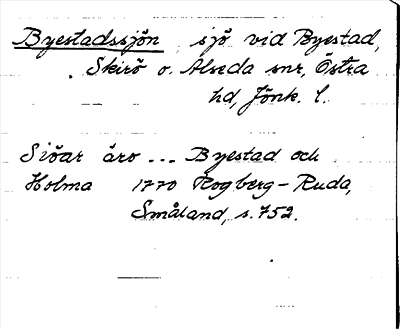 Byestadssjön, sjö vid Byestad,
Skirö o. Alseda snr, Östra
hd, Jönk. l.
Siöar äro ... Byestad och
Holma 1770 Rogberg-Ruda,
Småland, s. 752.